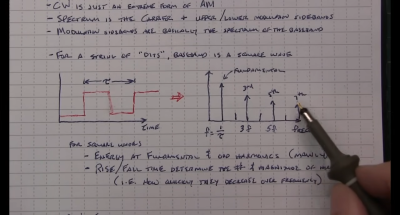 - CW IS JUST AN EXTREME FORM OF AM
- SPECTRUM IS THE CARRIER + UPPER/LOWER MODULATION SIDEBANDS
- MODULATION SIDEBANDS ARE BASICALLY THE SPECTRUM OF THE BASEBAND
- FOR A STRING OF "DITS", BASEBAND IS A SQUARE WAVE
FUNDAMENTAL
τ
3RD
5TH
7TH
TIME
f=1/τ
3f
5f
FOR SQUARE WAVES:
- ENERGY AT FUNDAMENTAL & ODD HARMONICS (MAINLY
- RISE/FALL TIME DETERMINE THE # & MAGNITUDE OF
(I.E. HOW QUICKLY THEY DECREASE OVER FREQUENCY)